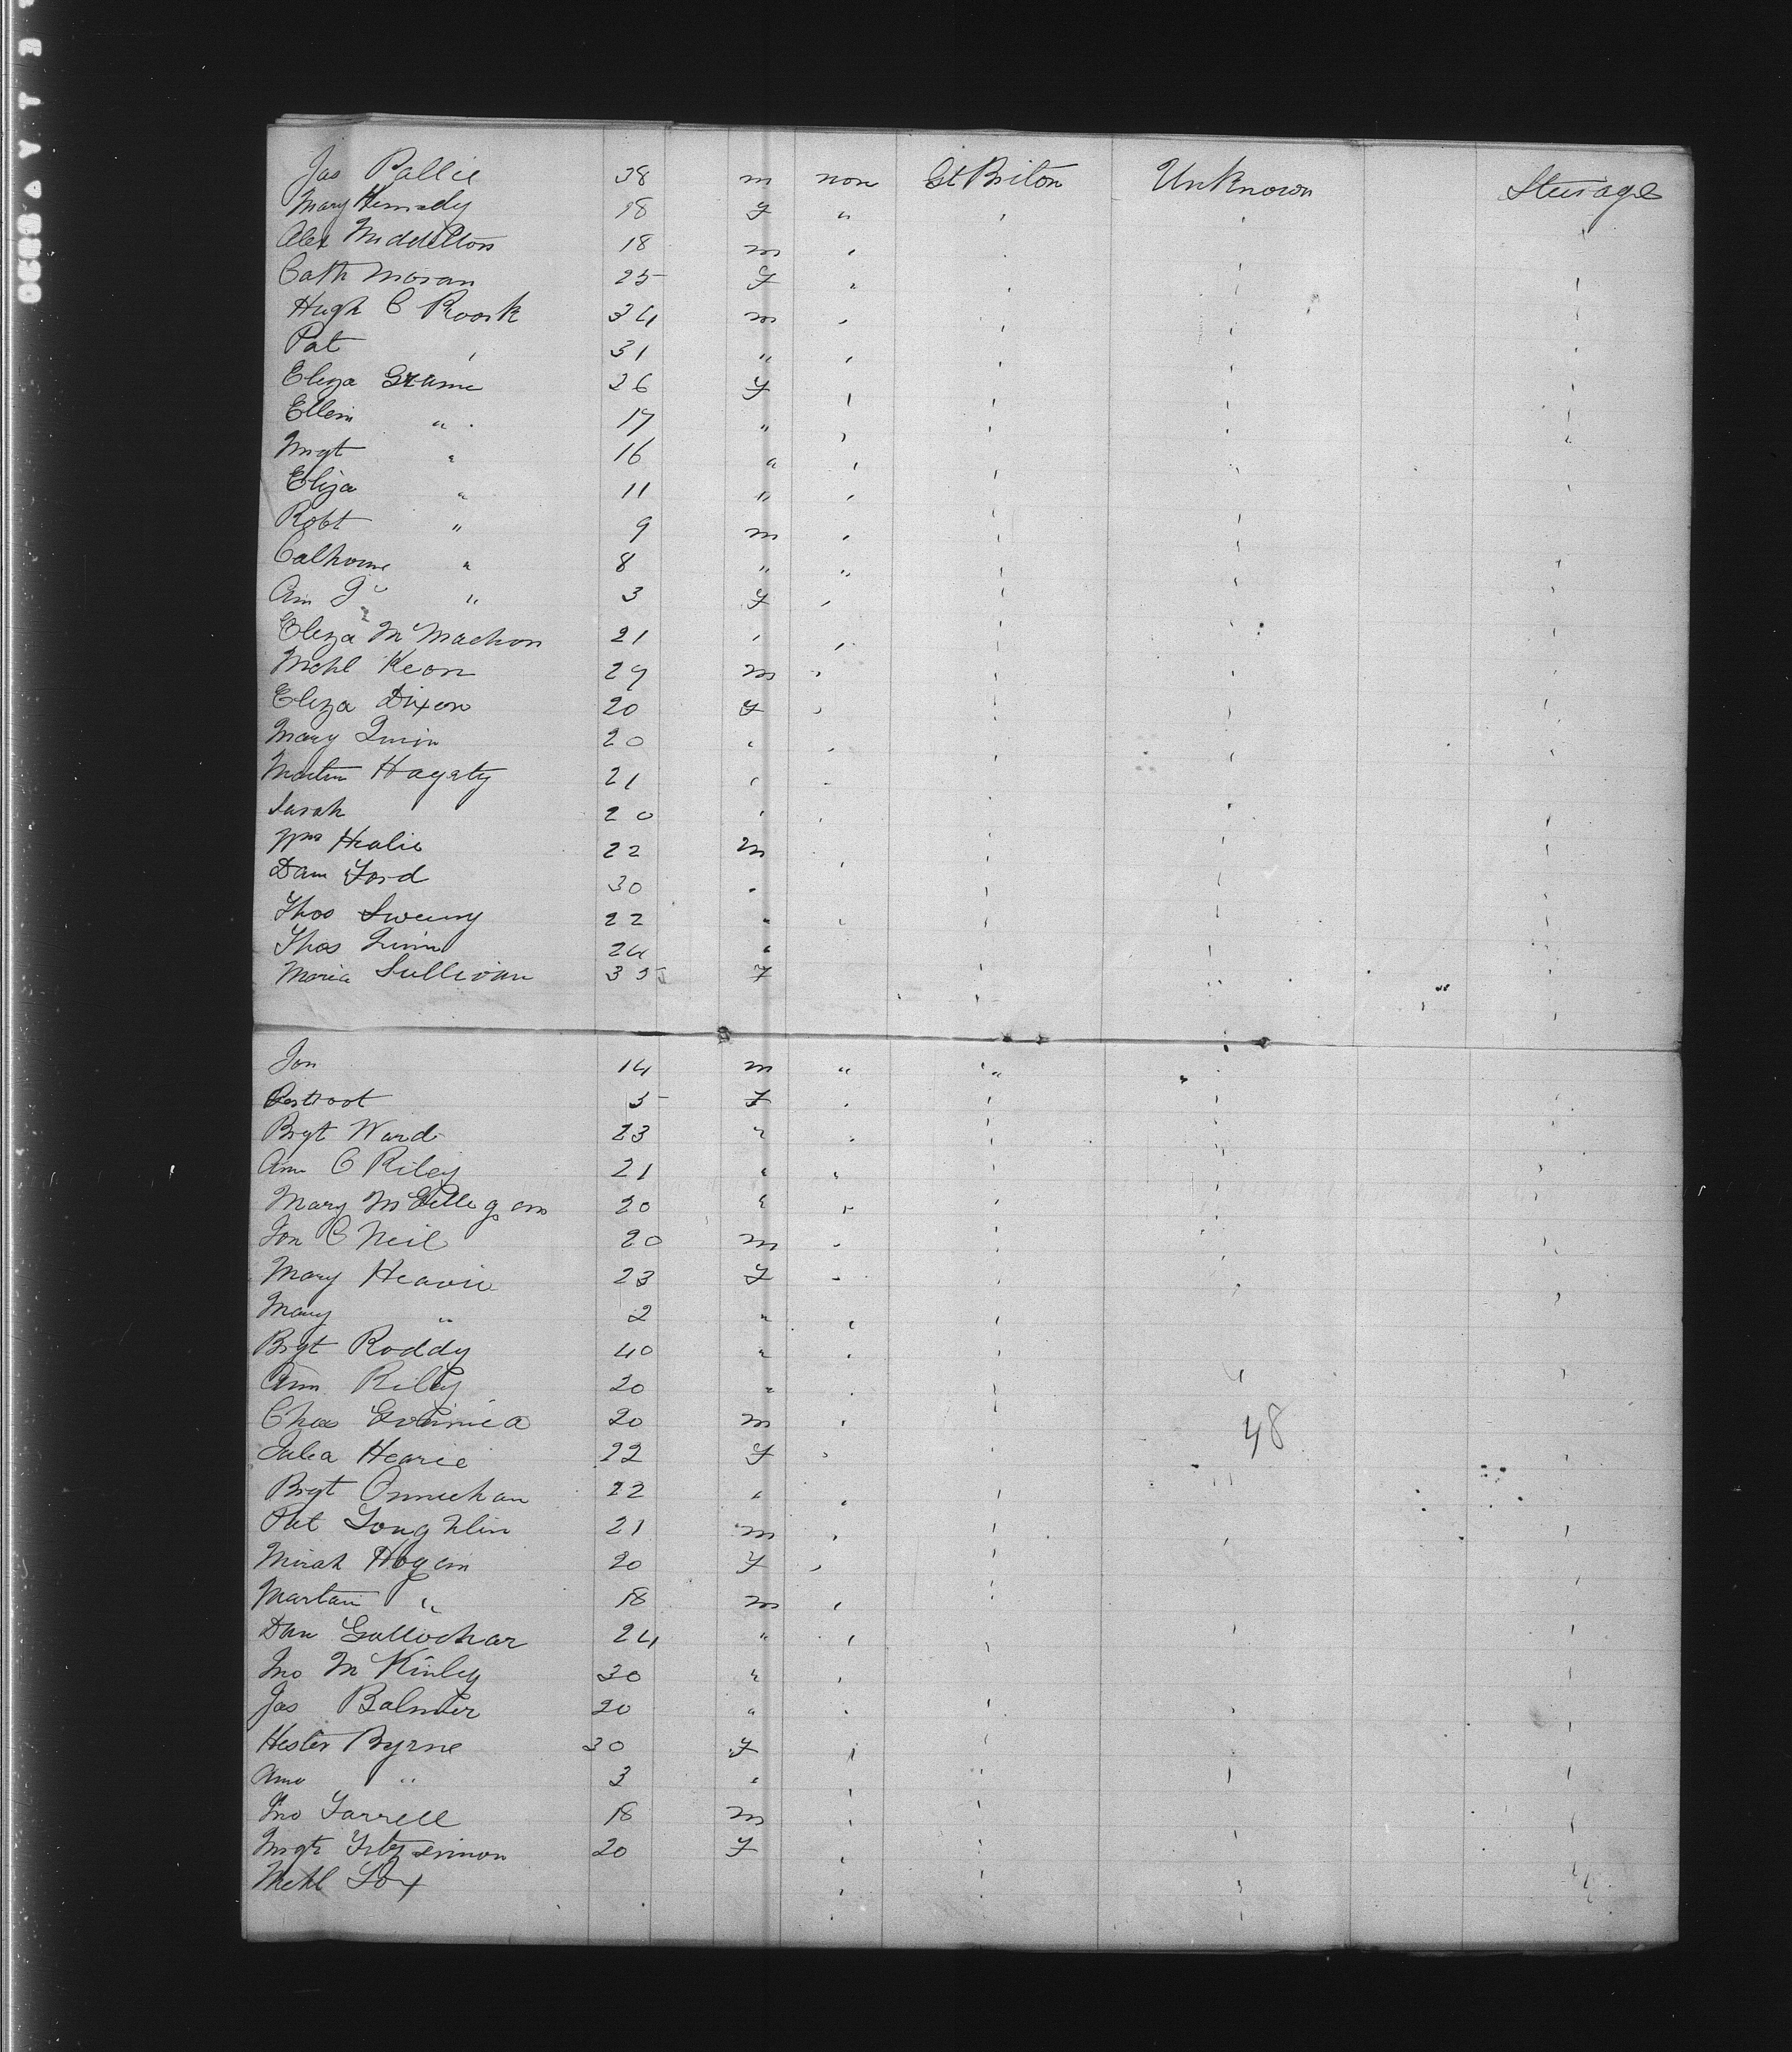 Jas Pallie 38 m non Gt Briton Unknown Steerage
Mary Kennedy 18 F "
Alex Middelton 18 m
Cath Moran 25 F
Hugh O Roork 34 m
Pat 31 "
Eliza Grame 26 F
Ellen " 17 "
Mrgt " 16 "
Eliza " 11 "
Robt " 9 m
Calhoune " 8 " "
Ann J " 3 F
Eliza McMachon 21
Mchl Keon 29 m
Eliza Dixon 20 F
Mary Quin 20
Martin Hagaty 21
Sarah 20
Wm Healie 22 m
Dam Ford 30
Thos Sweeny 22 "
Thos Quinn 24 "
Maria Sullivan 35 F
Jon 14 m " "
5 F
Brgt Ward 23 "
Ann O Riley 21 "
Mary McGilligan 20 "
Jon O Neil 20 m
Mary Heavie 23 F
Mary " 2 "
Brgt Roddy 40 "
Ann Riley 20 "
Chas 20 m
Julia Hearie 22 F
48
Brgt 22 "
Pat Loughlin 21 m
Mirah Hogan 20 F
Martain " 18 m
Dan Gallochar 24 "
Jno McKinley 30 "
Jas Balmer 20 "
Hester Byrne 30 F
Ann " 3 "
Jno Farrell 18 m
Mrgt Fitzsimon 20 F
Mchl Fox